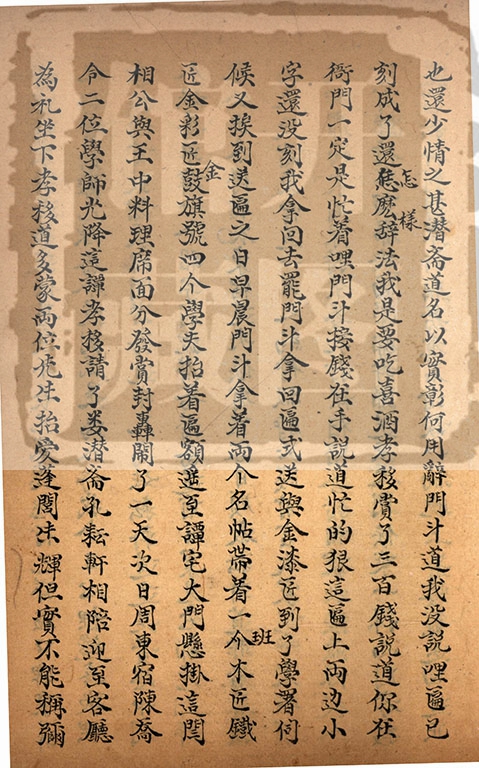 也還少情之甚潜斋道名以實彰何用辭門斗道我没説哩匾已
刻成了還怎麽様辞法我是要吃喜酒孝移賞了三百錢説道你在
衙門一定是忙着哩門斗接錢在手説道忙的狠這匾上両边小
字還没刻我拿回去罷門斗拿回匾式送與金漆匠到了學署伺
候又挨到送匾之日早晨門斗拿着両个名帖帶着一班木匠鐵
匠金彩匠金鼓旗號四个學夫抬着匾額逕至譚宅大門懸掛這閆
相公與王中料理席面分發賞封轟鬧了一天次日周東宿陳喬
令二位學師光降這譚孝移請了娄潜斋孔耘軒相陪迎至客廳
為礼坐下孝移道多蒙両位先生抬愛蓬閭生輝但實不能稱彌